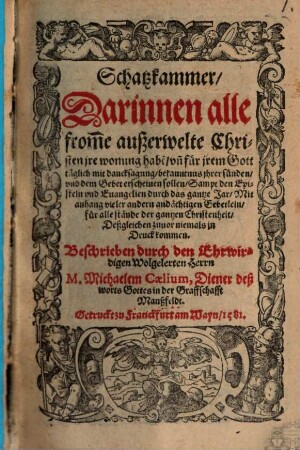 Schatzkammer/
Darinnen alle
from̃e außerwelte Chri-
sten jre wonung habẽ/ vñ für jrem Gott
täglich mit dancksagung/ bekantnuß jhrer sünden/
vnd dem Gebet erscheinen sollen/ Sampt den Epi-
steln vnd Euangelien durch das gantze Jar/ Mit
anhang vieler andern andächtigen Gebetlein/
für alle stände der gantzen Christenheit/
Deßgleichen zuuor niemals in
Druck kommen.
Beschrieben durch den Ehrwir-
digen Wolgelerten Herrn
M. Michaelem Cælium, Diener deß
worts Gottes in der Graffschafft
Manßfeldt.
Getruckt zu Franckfurt am Mayn/ 1581.